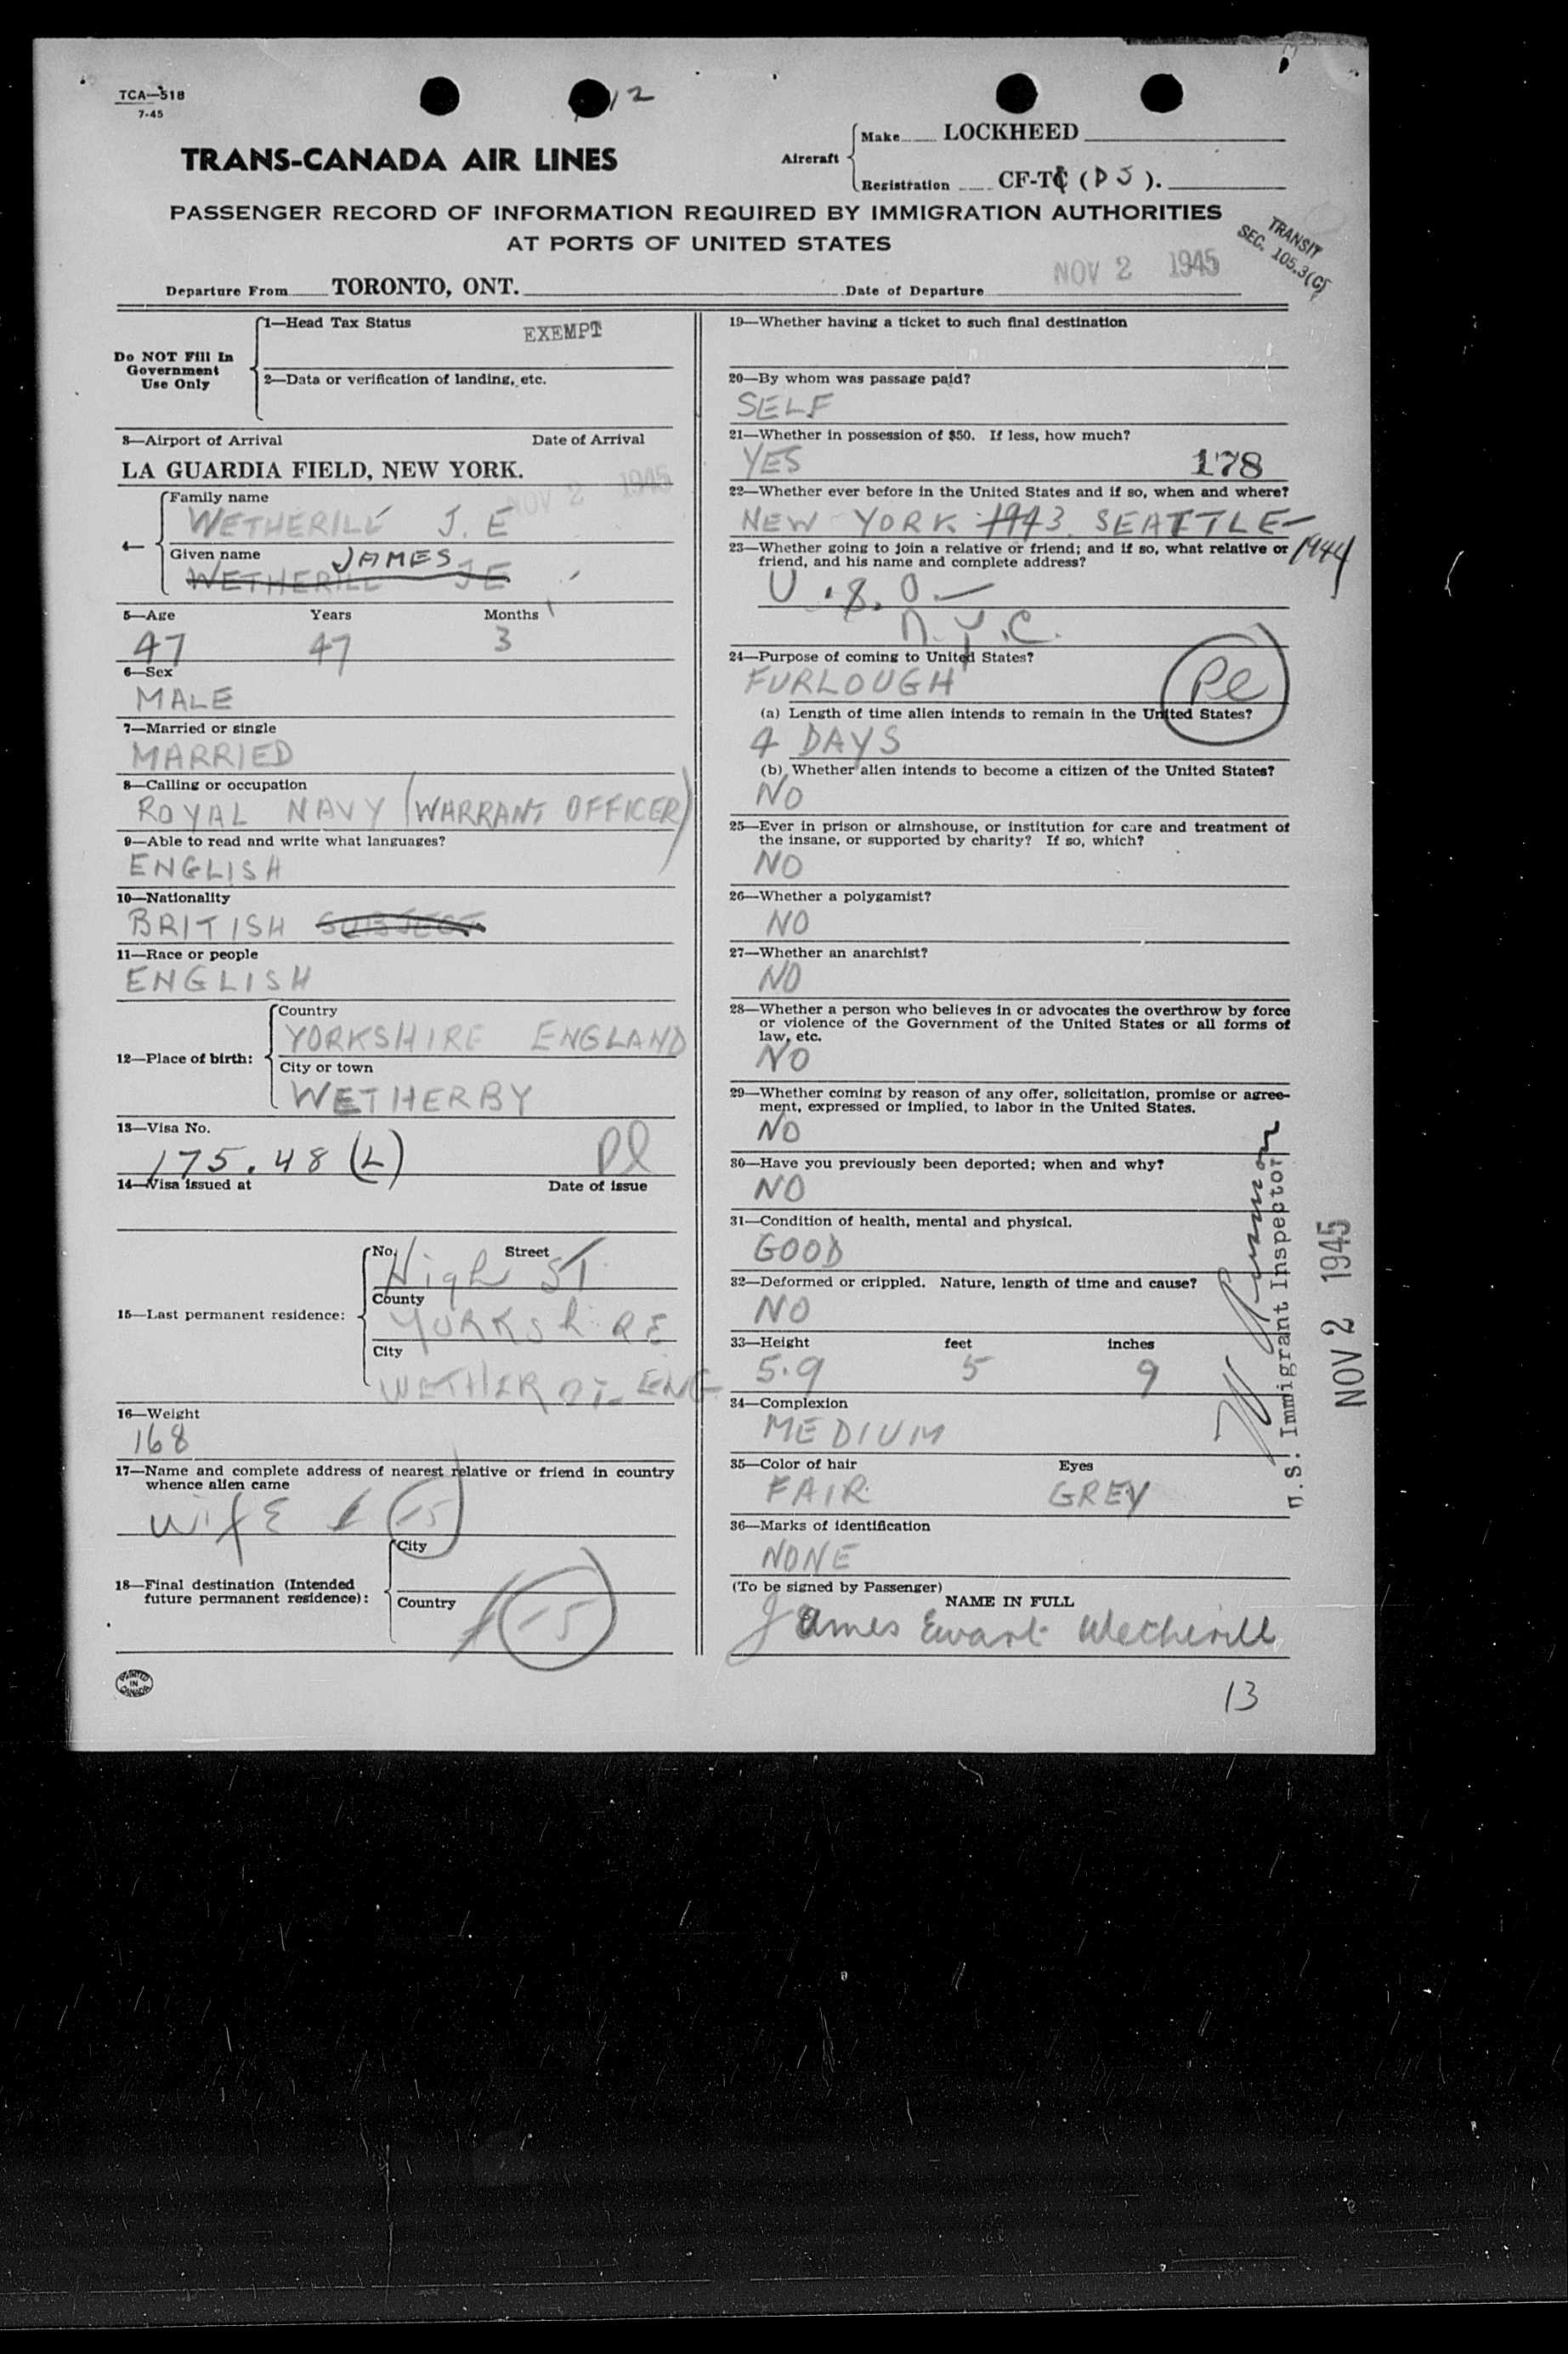 TCA—518
7-45
12
TRANS-CANADA AIR LINES
Aircraft
Make LOCKHEED
Registration CF-TC (DJ).
PASSENGER RECORD OF INFORMATION REQUIRED BY IMMIGRATION AUTHORITIES
AT PORTS OF UNITED STATES
TRANSIT
SEC. 105.3(C)
Departure From TORONTO, ONT. Date of Departure NOV 2 1945
Do NOT Fill In
Government
Use Only
1—Head Tax Status EXEMPT
2—Data or verification of landing, etc.
3—Airport of Arrival Date of Arrival
LA GUARDIA FIELD, NEW YORK.
NOV 2 1945
4—
Family name
WETHERILL J. E
Given name JAMES
WETHERILL JE
5—Age Years Months
47 47 3
6—Sex
MALE
7—Married or single
MARRIED
8—Calling or occupation
ROYAL NAVY (WARRANT OFFICER)
9—Able to read and write what languages?
ENGLISH
10—Nationality
BRITISH SUBJECT
11—Race or people
ENGLISH
12—Place of birth:
Country
YORKSHIRE ENGLAND
City or town
WETHERBY
13—Visa No.
175.48 (L)
14—Visa issued at Date of issue
15—Last permanent residence:
No. Street
High ST
County
YORKShiRE
City
ENG
16—Weight
168
17—Name and complete address of nearest relative or friend in country
whence alien came
WifE (15)
18—Final destination (Intended
future permanent residence):
City
Country
PRINTED
IN
CANADA
19—Whether having a ticket to such final destination
20—By whom was passage paid?
SELF
21—Whether in possession of $50. If less, how much?
YES 178
22—Whether ever before in the United States and if so, when and where?
NEW YORK 1943 SEATTLE—
1944
23—Whether going to join a relative or friend; and if so, what relative or
friend, and his name and complete address?
N.Y.C.
24—Purpose of coming to United States?
FURLOUGH
(a) Length of time alien intends to remain in the United States?
4 DAYS
(b) Whether alien intends to become a citizen of the United States?
NO
25—Ever in prison or almshouse, or institution for care and treatment of
the insane, or supported by charity? If so, which?
NO
26—Whether a polygamist?
NO
27—Whether an anarchist?
NO
28—Whether a person who believes in or advocates the overthrow by force
or violence of the Government of the United States or all forms of
law, etc.
NO
29—Whether coming by reason of any offer, solicitation, promise or agree-
ment, expressed or implied, to labor in the United States.
NO
30—Have you previously been deported; when and why?
NO
31—Condition of health, mental and physical.
GOOD
32—Deformed or crippled. Nature, length of time and cause?
NO
33—Height feet inches
5.9 5 9
34—Complexion
MEDIUM
35—Color of hair Eyes
FAIR GREY
36—Marks of identification
NONE
(To be signed by Passenger)
NAME IN FULL
James Ewart Wetherill
U.S. Immigrant Inspector
NOV 2 1945
13